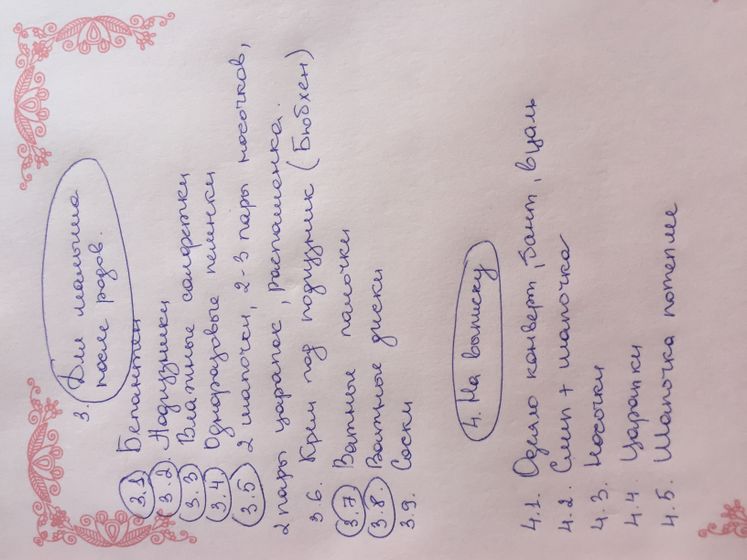 3. Для малыша
после родов.
3.1 Бепантен
3.2. Подгузники
3.3 Влажные салфетки
3.4 Одноразовые пеленки
3.5 2 шапочки, 2-3 пары носочков,
2 пары царапок, распашонка.
3.6. Крем под подгузник (Бюбхен)
3.7 Ватные палочки
3.8. Ватные диски
3.9. Соски
4. На выписку
4.1. Одеяло конверт, бант, вуаль
4.2. Слип + шапочка
4.3. Носочки
4.4 Царапки
4.5. Шапочка потепле